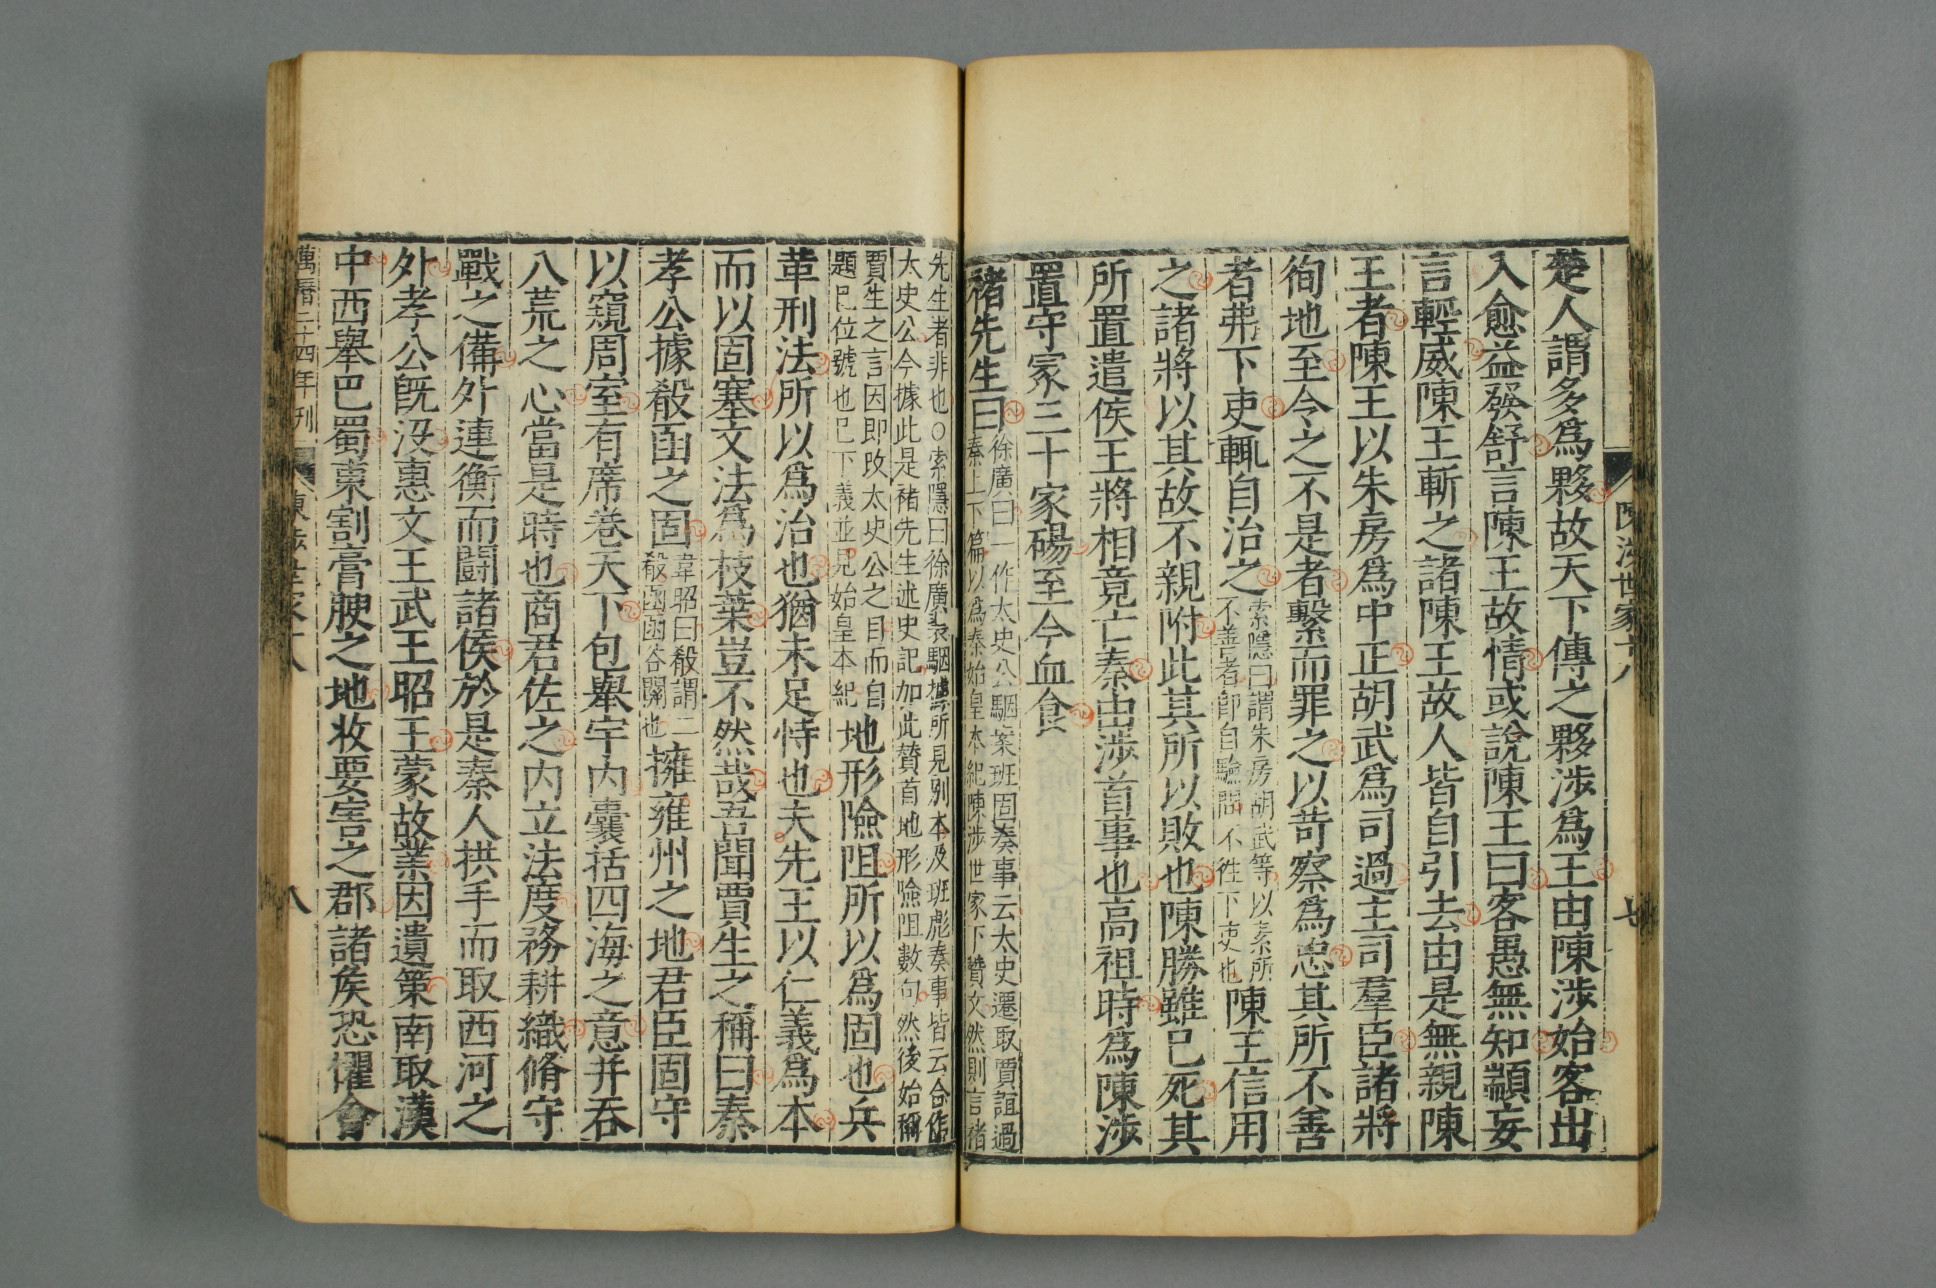 陳涉世家十八 七
楚人謂多爲夥故天下傳之夥涉爲王由陳涉始客出
入愈益發舒言陳王故情或說陳王曰客愚無知顓妄
言輕威陳王斬之諸陳王故人皆自引去由是無親陳
王者陳王以朱房爲中正胡武爲司過主司羣臣諸將
徇地至令之不是者繫而罪之以苛察爲忠其所不善
者弗下吏輒自治之索隱曰謂朱房胡武等以素所不善者即自驗問不往下吏也陳王信用
之諸將以其故不親附此其所以敗也陳勝雖已死其
所置遣侯王將相竟亡秦由涉首事也高祖時爲陳涉
置守冢三十家碭至今血食
褚先生曰徐廣曰一作太史公駰案班固奏事云太史遷取賈誼過秦上下篇以爲秦始皇本紀陳涉世家下贊文然則言褚
先生者非也○索隱曰徐廣裴駰據所見別本及班彪奏事皆云合作
太史公今據此是褚先生述史記加此贊首地形險阻數句然後始稱
賈生之言因即改太史公之目而自題已位號也已下義並見始皇本紀地形險阻所以爲固也兵
革刑法所以爲治也猶未足恃也夫先王以仁義爲本
而以固塞文法爲枝葉豈不然哉吾聞賈生之稱曰秦
孝公據殽函之固韋昭曰殽謂二殽函函谷關也擁雍州之地君臣固守
以窺周室有席卷天下包舉宇内囊括四海之意并吞
八荒之心當是時也商君佐之内立法度務耕織脩守
戰之備外連衡而鬪諸侯於是秦人拱手而取西河之
外孝公旣沒惠文王武王昭王蒙故業因遺策南取漢
中西舉巴蜀東割膏腴之地收要害之郡諸侯恐懼會
萬曆二十四年刊 陳涉世家十八 八